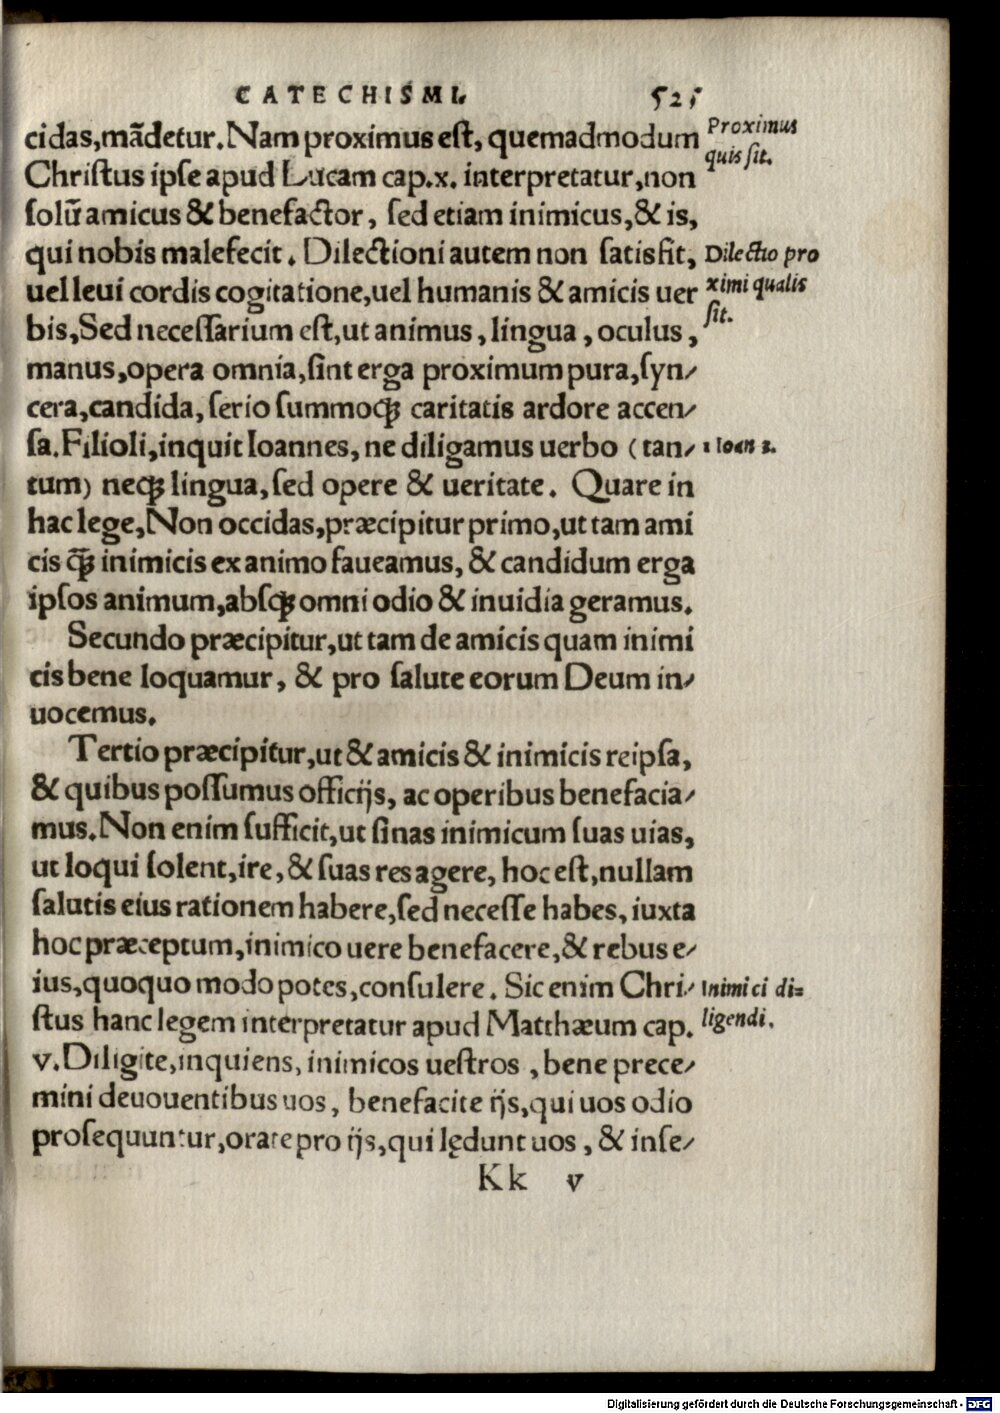 CATECHISMI. 525
cidas,mãdetur.Nam proximus est, quemadmodum Proximus
Christus ipse apud Lucam cap.x. interpretatur,non quis sit.
solũ amicus & benefactor, sed etiam inimicus,& is,
qui nobis malefecit. Dilectioni autem non satisfit, Dilectio pro
uel leui cordis cogitatione,uel humanis & amicis uer ximi qualis
bis,Sed necessarium est,ut animus, lingua, oculus, sit.
manus,opera omnia,sint erga proximum pura,syn/
cera,candida, serio summoq́; caritatis ardore accen/
sa.Filioli,inquit Ioannes, ne diligamus uerbo (tan/ 1 Ioan 3.
tum) neq; lingua,sed opere & ueritate. Quare in
hac lege,Non occidas,præcipitur primo,ut tam ami
cis q̃; inimicis ex animo faueamus, & candidum erga
ipsos animum,absq; omni odio & inuidia geramus.
Secundo præcipitur,ut tam de amicis quam inimi
cis bene loquamur, & pro salute eorum Deum in/
uocemus.
Tertio præcipitur,ut & amicis & inimicis reipsa,
& quibus possumus officijs, ac operibus benefacia/
mus.Non enim sufficit,ut sinas inimicum suas uias,
ut loqui solent,ire,& suas res agere, hoc est,nullam
salutis eius rationem habere,sed necesse habes, iuxta
hoc præceptum,inimico uere benefacere,& rebus e/
ius,quoquo modo potes,consulere. Sic enim Chri/ Inimici di=
stus hanc legem interpretatur apud Matthæum cap. ligendi.
v.Diligite,inquiens, inimicos uestros, bene prece/
mini deuouentibus uos, benefacite ijs,qui uos odio
prosequuntur,orate pro ijs,qui lędunt uos, & inse/
Kk v
Digitalisierung gefördert durch die Deutsche Forschungsgemeinschaft - DFG